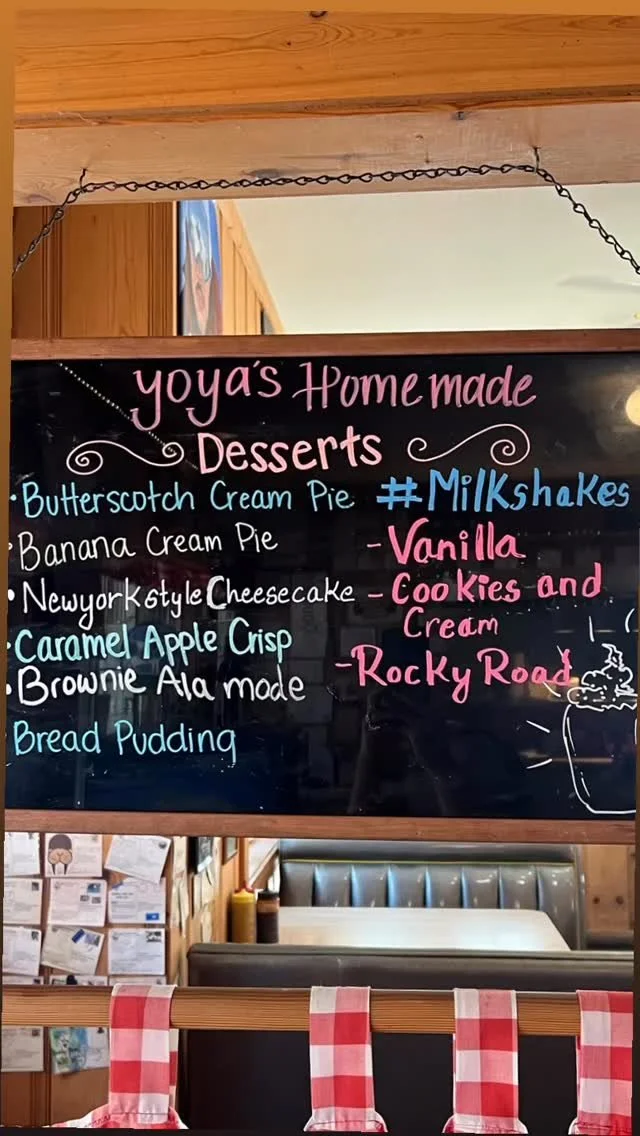 yoya's Homemade
Desserts
·Butterscotch Cream Pie
·Banana Cream Pie
·Newyorkstyle Cheesecake
·Caramel Apple Crisp
·Brownie Ala mode
Bread Pudding
#Milkshakes
-Vanilla
-Cookies and
Cream
-Rocky Road